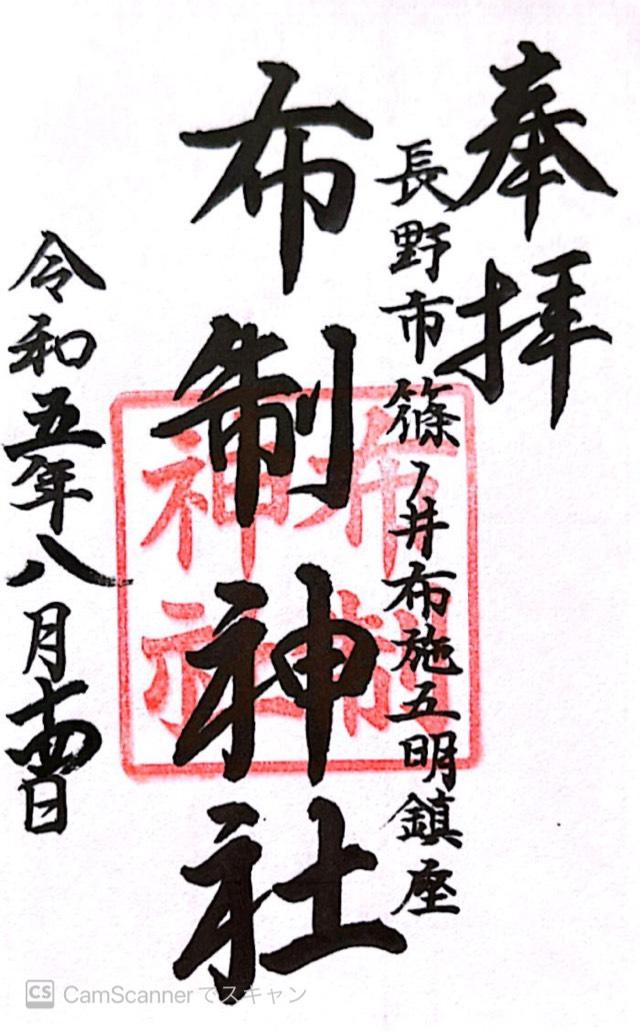 奉拝
長野市篠ノ井布施五明鎮座
布制神社
布制
神社
令和五年八月十四日
CS CamScannerでスキャン